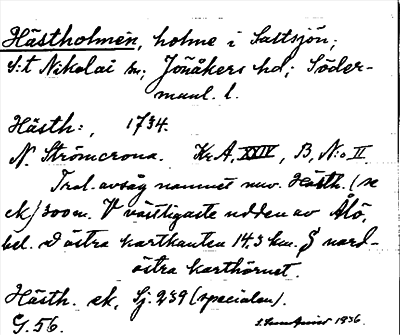 Hästholmen, holme i Saltsjön;
S:t Nikolai sn; Jönåkers hd; Söder-
manl. l.
Hästh:, 1734.
N. Strömcrona. Kr. A, XXIV, B, N:o II
Trol. avsåg namnet nuv. Hästh. (se
ek) 300 m. V västligaste udden av Ålö,
bel. d östra kartkanten 14,3 km. S nord-
östra karthörnet.
Hästh. ek. Sj. 239 (specialen).
G. 56. 1936.